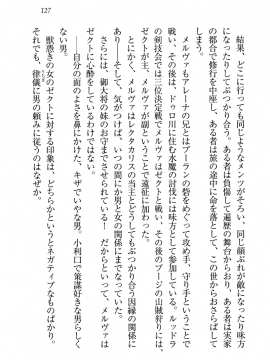 127
結果、どこに行っても同じようなメンツがいて、同じ顔ぶれが敵に
なったり味方になったりしてぶつかり合う。ある者は負傷して遍歴の舞台から去り、ある者は実家
の都合で修行を中座し、ある者は旅の途中に命を落としてこの世からおさらばする。
メルヴァもアレーナの兄とはブーランの砦をめぐって攻め手、守り手として
戦い、その後は、ドゥロ川に住む水魔の討伐には味方として参加している。ルッドラ
の剣技会では三位決定戦でメルヴァはゼクトと戦い、その後のブージの山賊狩りには、
ゼクトが主、メルヴァが副ということで遠征に加わった。
とにかく、メルヴァはレクタカラスの当主とどうでもぶつかり合う因縁の関係に
あった。そして、気がつけば、いつの間にか男と女の関係にまでなっていた。
さらには、御大将の妹のお守までさせている――だからといって、メルヴァは
ゼクトに心酔をしているわけではない。
――自分の面のよさを鼻にかけた、キザでいやな男。小利口で策謀好きな男らしく
ない男。
獣憑きの女のゼクトに対する印象は、どちらかというとネガティブなものばかり。
それでも、律儀に男の頼みに従うのはなぜか。